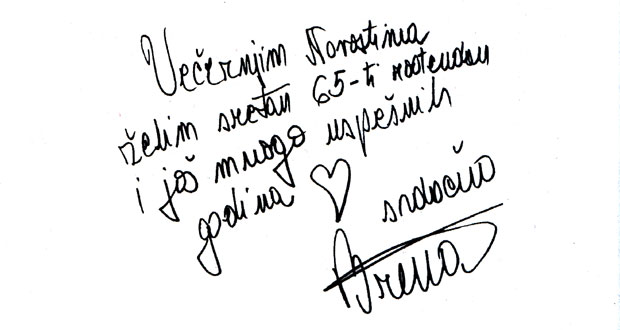 Večernjim Novostima
želim sretan 65-ti rođendan
i još mnogo uspešnih
godina ♡ srdačno
Brena